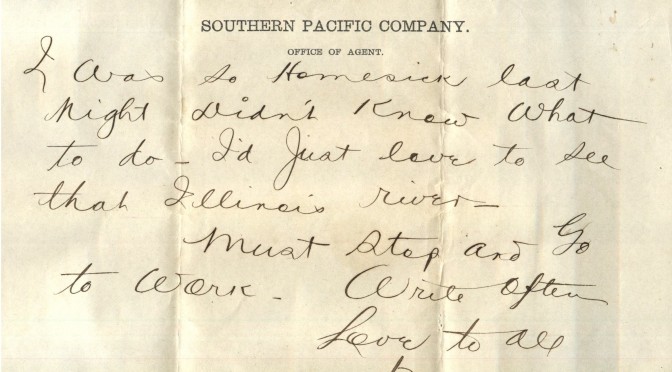 SOUTHERN PACIFIC COMPANY.
OFFICE OF AGENT.
I Was so Homesick last
Night Didn't Know What
to do - I'd Just love to see
that Illinois river -
Must Stop and Go
to Work - Write Often
Love to all